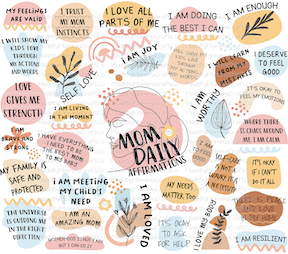 MY FEELINGS
ARE VALID
I TRUST
MY MOM
INSTINCTS
I LOVE ALL
PARTS OF ME
I AM DOING
THE BEST I CAN
I AM ENOUGH
I WILL SHOW MY
KIDS LOVE
THROUGH
MY ACTIONS
AND WORDS
SELF LOVE
I AM JOY
I WILL SHOW MY
KIDS LOVE
THROUGH
MY ACTIONS
AND WORDS
I WILL LEARN
FROM MY
MISTAKES
I DESERVE
TO FEEL
GOOD
LOVE
GIVES ME
STRENGTH
I AM LIVING
IN THE MOMENT
I AM
WORTHY
IT'S OKAY TO
FEEL MY EMOTIONS
WHERE THERE
IS CHAOS AROUND
ME I AM CALM
I AM
BRAVE AND
STRONG
I HAVE
EVERYTHING
I NEED TO BE
THE BEST
MOM TO
MY BABY
MOM
DAILY
AFFIRMATIONS
I AM
SELF-CARE
IS NOT
IT'S
NECESSARY
IT'S OKAY
IF I CAN'T
DO IT ALL
MY FAMILY IS
SAFE AND
PROTECTED
I AM MEETING
MY CHILD'S
NEED
I AM LOVED
MY NEEDS
MATTER TOO
I LOVE MY BODY
THE UNIVERSE
IS GUIDING ME
IN THE RIGHT
DIRECTION
I AM AN
AMAZING MOM
BUT I CAN DO IT
IT'S OKAY
TO ASK
FOR HELP
I AM RESILIENT